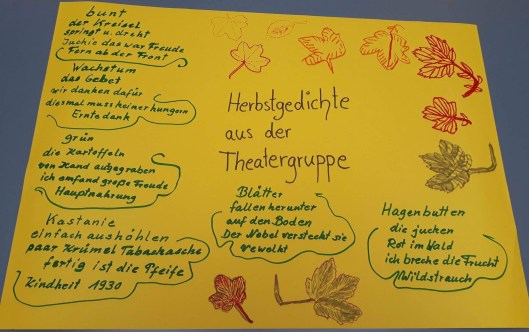 bunt
der Kreisel
springt u. dreht
Juchie das war Freude
Fern ab der Front
Wachstum
das Gebet
wir danken dafür
diesmal muss keiner hungern
Erntedank
grün
die Kartoffeln
von Hand ausgegraben
ich emfand große Freude
Hauptnahrung
Kastanie
einfach aushöhlen
paar Krümel Tabakasche
fertig ist die Pfeife
Kindheit 1930
Herbstgedichte
aus der
Theatergruppe
Blätter
fallen herunter
auf den Boden
Der Nebel versteckt sie
verwelkt
Hagenbutten
die jucken
Rot im Wald
ich breche die Frucht
Wildstrauch